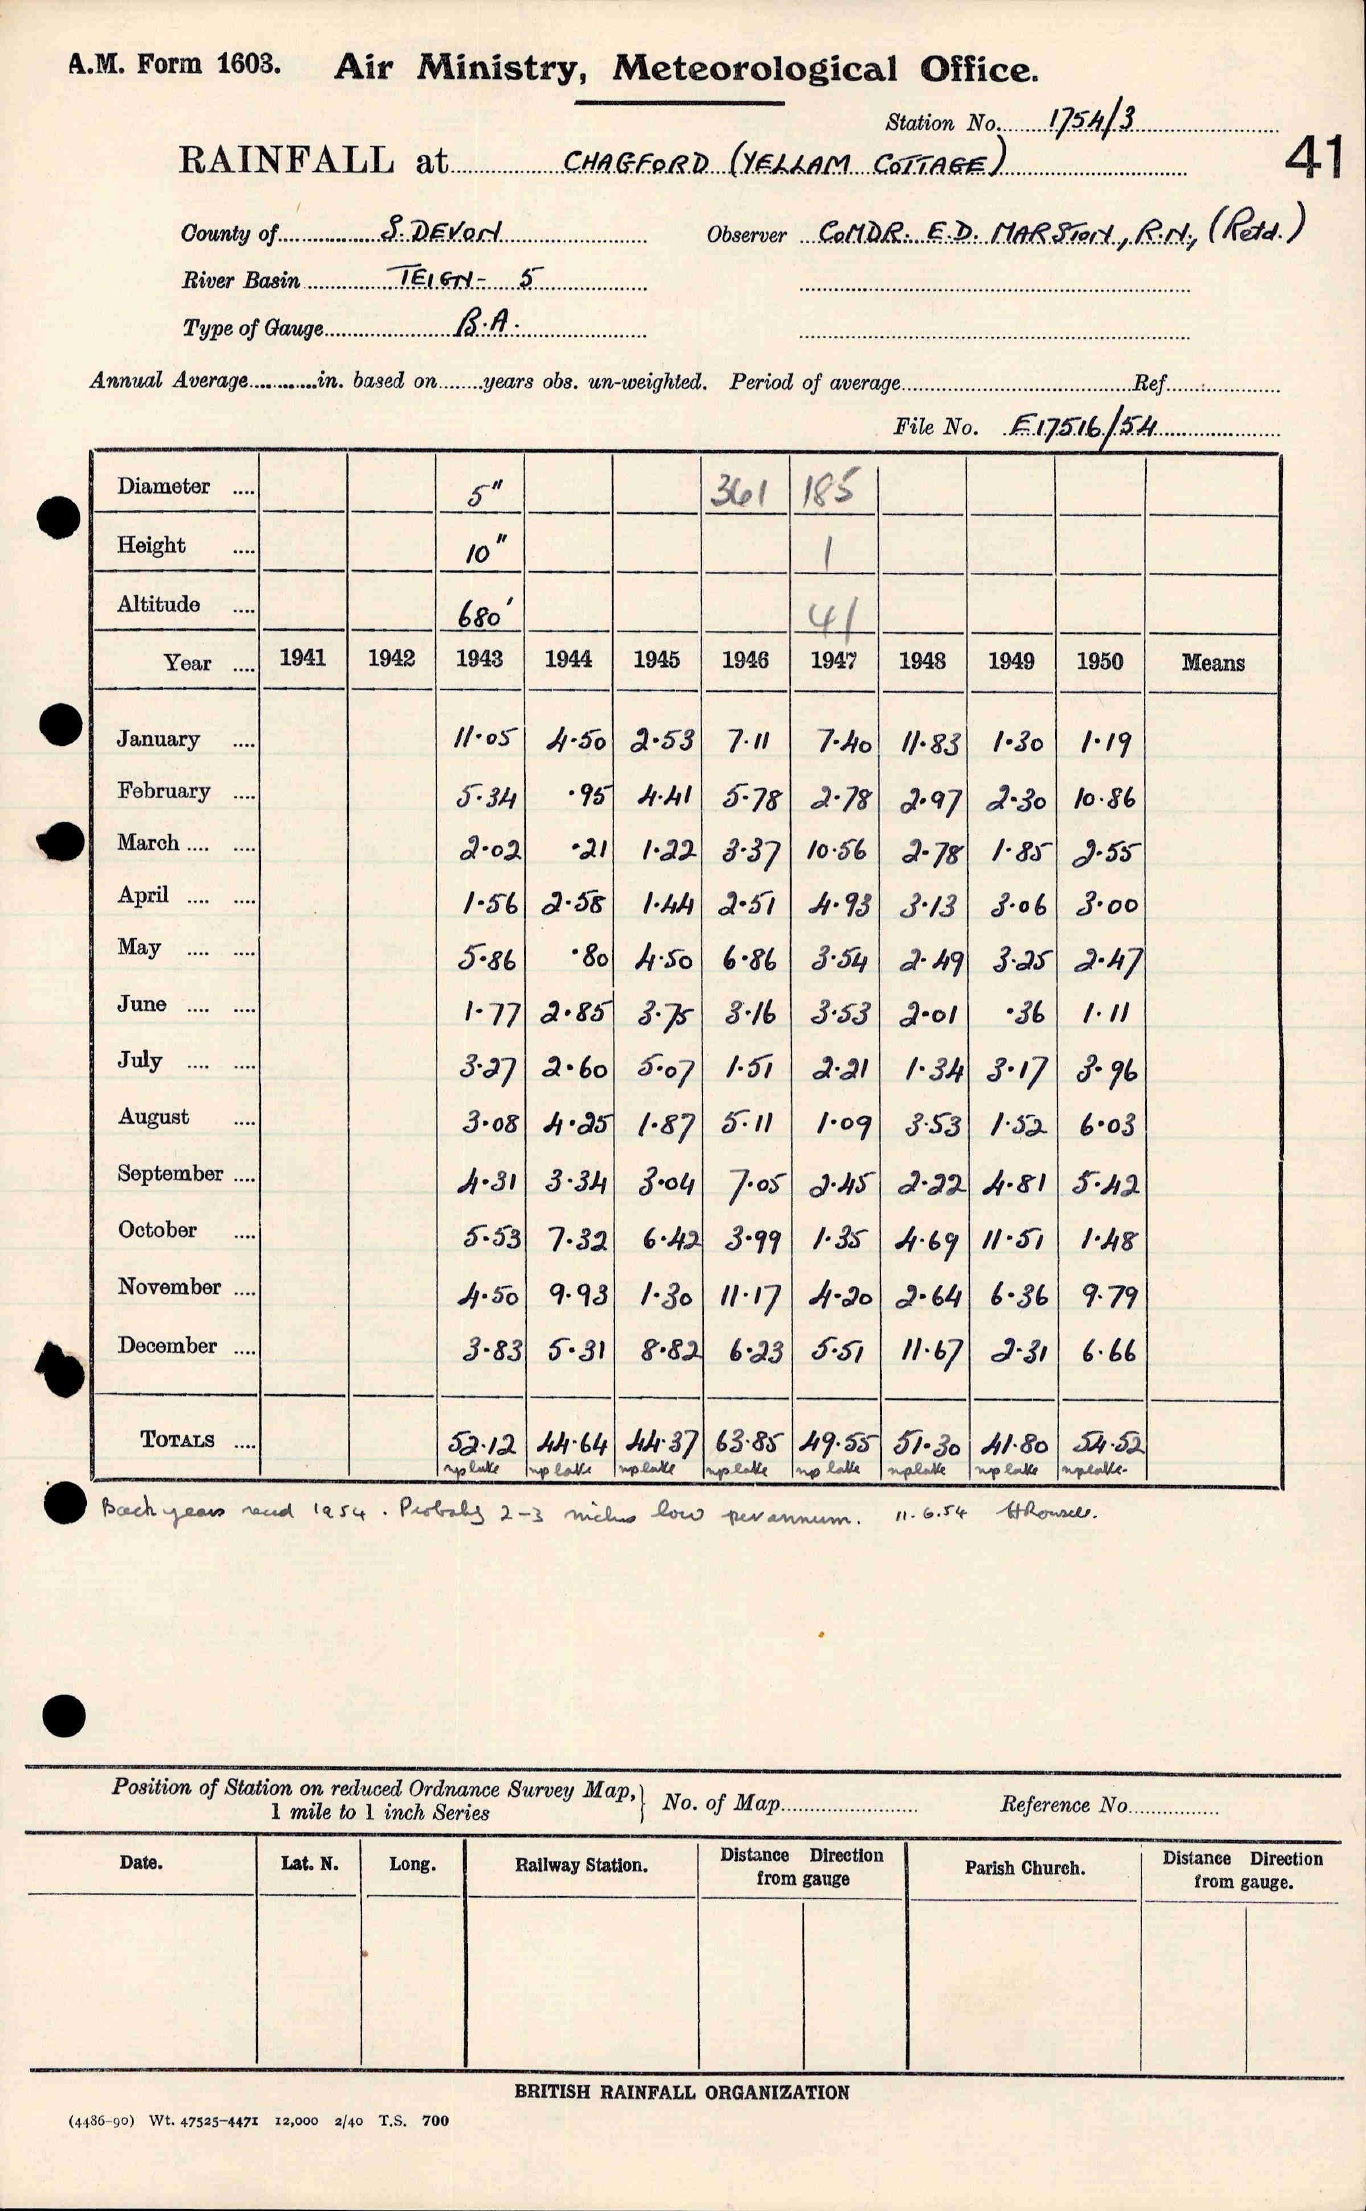 A.M. Form 1603. Air Ministry, Meteorological Office.
Station No. 1754/3
RAINFALL at CHAGFORD (YELLAM COTTAGE)
41
County of S. DEVON Observer COMDR. E.D. MARSTON, R.N., (Retd.)
River Basin TEIGN- 5
Type of Gauge B.A.
Annual Average in. based on years obs. un-weighted. Period of average Ref
File No. E17516/54
Diameter .... 5" 361 185
Height .... 10" 1
Altitude .... 680' 41
Year .... 1941 1942 1943 1944 1945 1946 1947 1948 1949 1950 Means
January .... 11.05 4.50 2.53 7.11 7.40 11.83 1.30 1.19
February .... 5.34 .95 4.41 5.78 2.78 2.97 2.30 10.86
March .... .... 2.02 .21 1.22 3.37 10.56 2.78 1.85 2.55
April .... .... 1.56 2.58 1.44 2.51 4.93 3.13 3.06 3.00
May .... .... 5.86 .80 4.50 6.86 3.54 2.49 3.25 2.47
June .... .... 1.77 2.85 3.75 3.16 3.53 2.01 .36 1.11
July .... .... 3.27 2.60 5.07 1.51 2.21 1.34 3.17 3.96
August .... 3.08 4.25 1.87 5.11 1.09 3.53 1.52 6.03
September .... 4.31 3.34 3.04 7.05 2.45 2.22 4.81 5.42
October .... 5.53 7.32 6.42 3.99 1.35 4.69 11.51 1.48
November .... 4.50 9.93 1.30 11.17 4.20 2.64 6.36 9.79
December .... 3.83 5.31 8.82 6.23 5.51 11.67 2.31 6.66
TOTALS .... 52.12 44.64 44.37 63.85 49.55 51.30 41.80 54.52
Back years recd 1954. Probably 2-3 inches low per annum. 11.6.54
Position of Station on reduced Ordnance Survey Map, } No. of Map Reference No.
1 mile to 1 inch Series
Date. Lat. N. Long. Railway Station. Distance Direction from gauge Parish Church. Distance Direction from gauge.
BRITISH RAINFALL ORGANIZATION
(4486-90) Wt. 47525-4471 12,000 2/40 T.S. 700